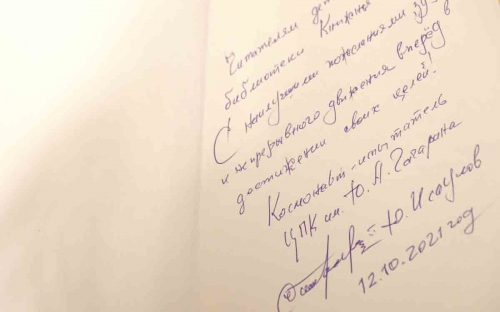 Читателям дет
библиотеки Книжная
С наилучшими пожеланиями
и непрерывного движения вперёд в
достижении своих целей!
Космонавт-испытатель
ЦПК им. Ю. А. Гагарина
Ю. Исаулов
12.10.2021 год